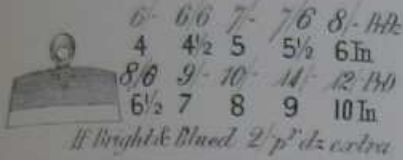 6/- 6/6 7/- 7/6 8/- P Dz
4 4½ 5 5½ 6 In
8/6 9/- 10/- 11/- 12/-
6½ 7 8 9 10 In
If Bright & Blued 2/- pr dz extra